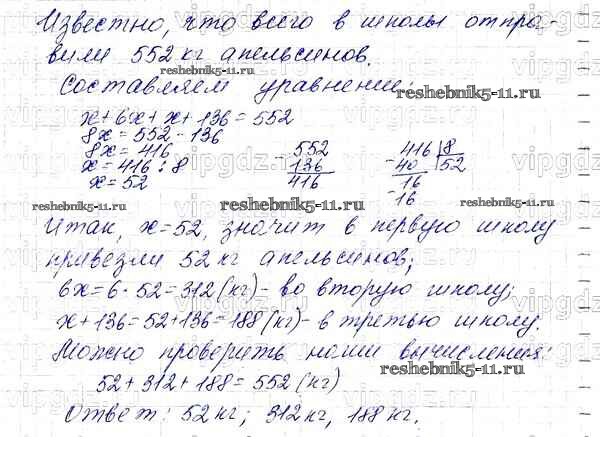 Известно, что всего в школы отпра-
вили 552 кг апельсинов.
reshebnik5-11.ru
Составляем уравнение:
reshebnik5-11.ru
x + 6x + x + 136 = 552
8x = 552 - 136
8x = 416
x = 416 : 8
x = 52
- 552
136
416
416 | 8
- 40 52
16
- 16
reshebnik5-11.ru reshebnik5-11.ru reshebnik5-11.ru
Итак, x = 52, значит в первую школу
привезли 52 кг апельсинов;
6x = 6 · 52 = 312 (кг) - во вторую школу;
x + 136 = 52 + 136 = 188 (кг) - в третью школу.
Можно проверить наши вычисления:
reshebnik5-11.ru
52 + 312 + 188 = 552 (кг)
Ответ: 52 кг; 312 кг, 188 кг.